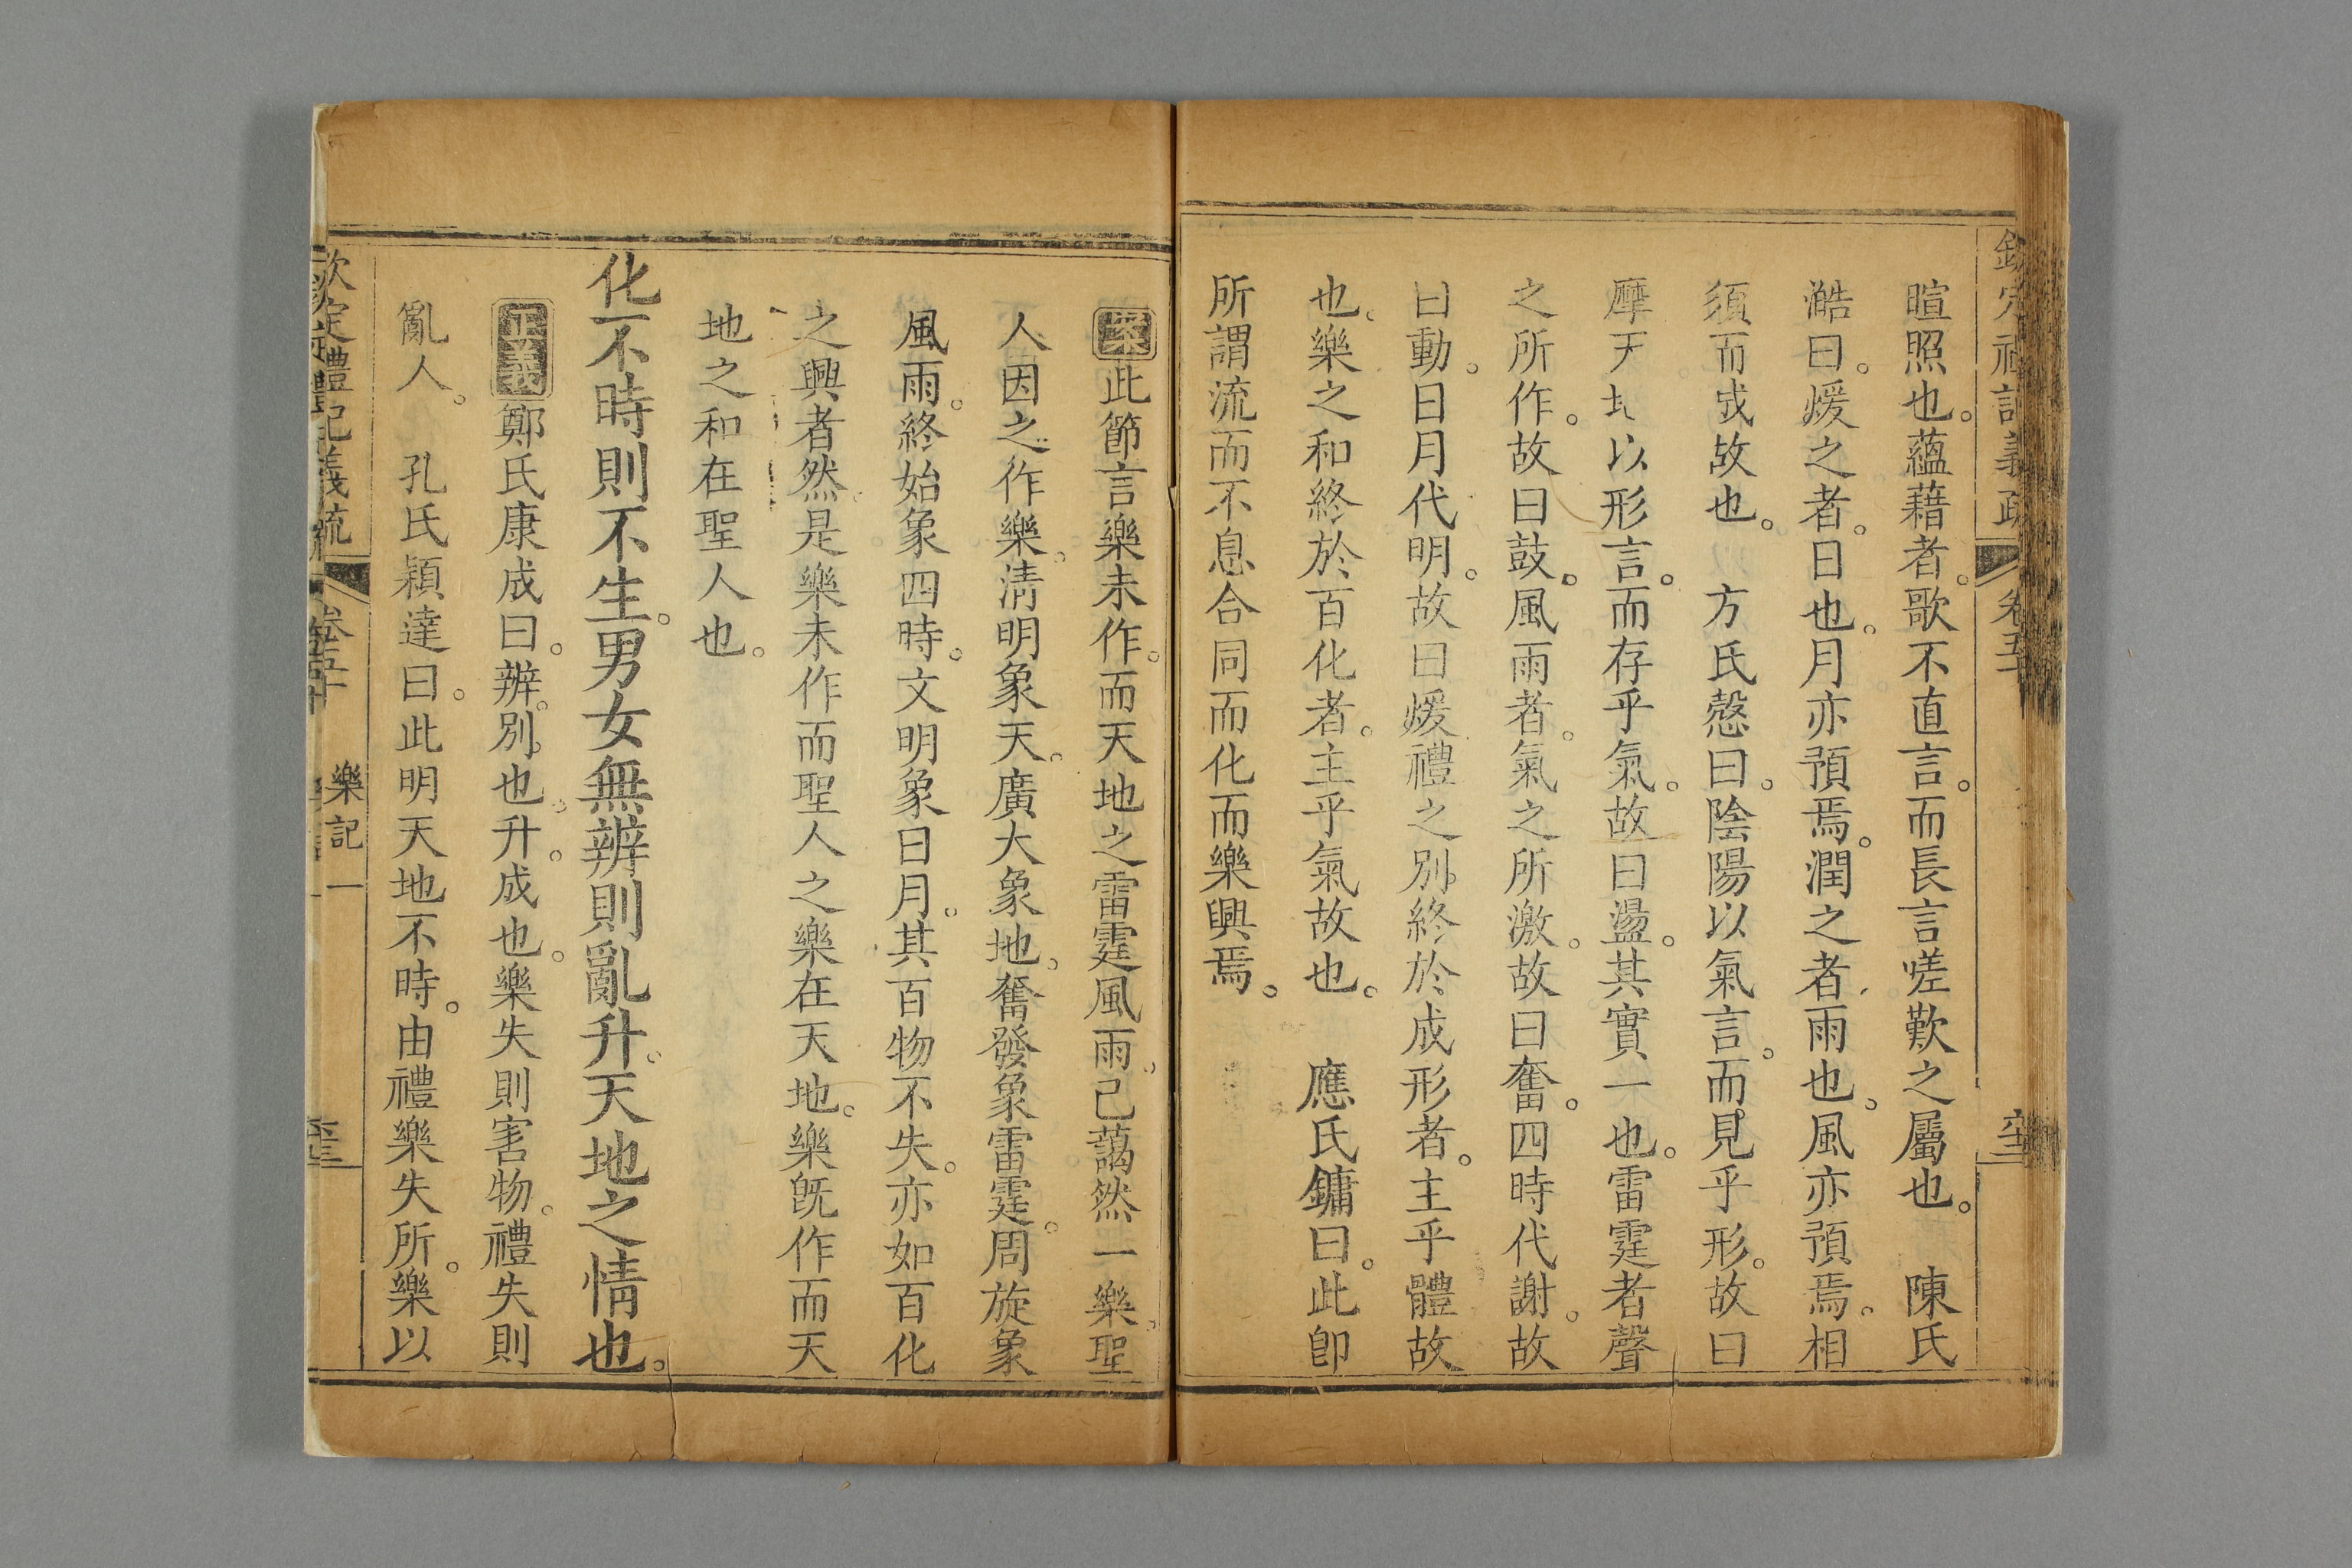 暄照也。蘊藉者。歌不直言。而長言嗟歎之屬也。　陳氏
澔曰。煖之者。日也。月亦預焉。潤之者雨也。風亦預焉。相
須而成故也。　方氏慤曰。陰陽以氣言。而見乎形。故曰
摩天地以形言。而存乎氣。故曰盪。其實一也。雷霆者聲
之所作。故曰鼓。風雨者。氣之所激。故曰奮。四時代謝。故
曰動。日月代明。故曰煖禮之別。終於成形者。主乎體故
也。樂之和終於百化者。主乎氣故也。　應氏鏞曰。此卽
所謂流而不息合同而化而樂興焉。
案此節言樂未作。而天地之雷霆風雨。已藹然一樂。聖
人因之作樂。淸明象天。廣大象地。奮發象雷霆。周旋象
風雨。終始象四時。文明象日月。其百物不失。亦如百化
之興者然。是樂未作而聖人之樂在天地。樂旣作而天
地之和在聖人也。
化不時則不生。男女無辨則亂升。天地之情也。
正義鄭氏康成曰。辨。別也。升。成也。樂失則害物。禮失則
亂人。　孔氏穎達曰。此明天地不時。由禮樂失所。樂以
欽定禮記義疏　卷五十　樂記一